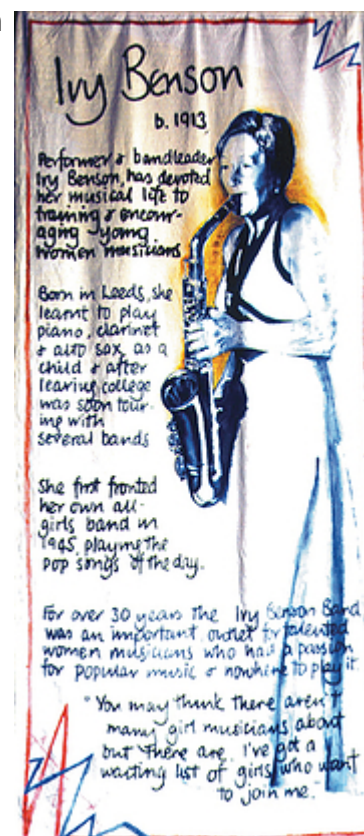 Ivy Benson
b. 1913
Performer & bandleader
Ivy Benson, has devoted
her musical life to
training & encour-
aging young
women musicians
Born in Leeds, she
learnt to play
piano, clarinet
& alto sax as a
child & after
leaving college
was soon tour-
ing with
several bands
She first fronted
her own all-
girls band in
1945 playing the
pop songs of the day.
For over 30 years the Ivy Benson Band
was an important outlet for talented
women musicians who had a passion
for popular music & nowhere to play it.
"You may think there aren't
many girl musicians about
but there are. I've got a
waiting list of girls who want
to join me."